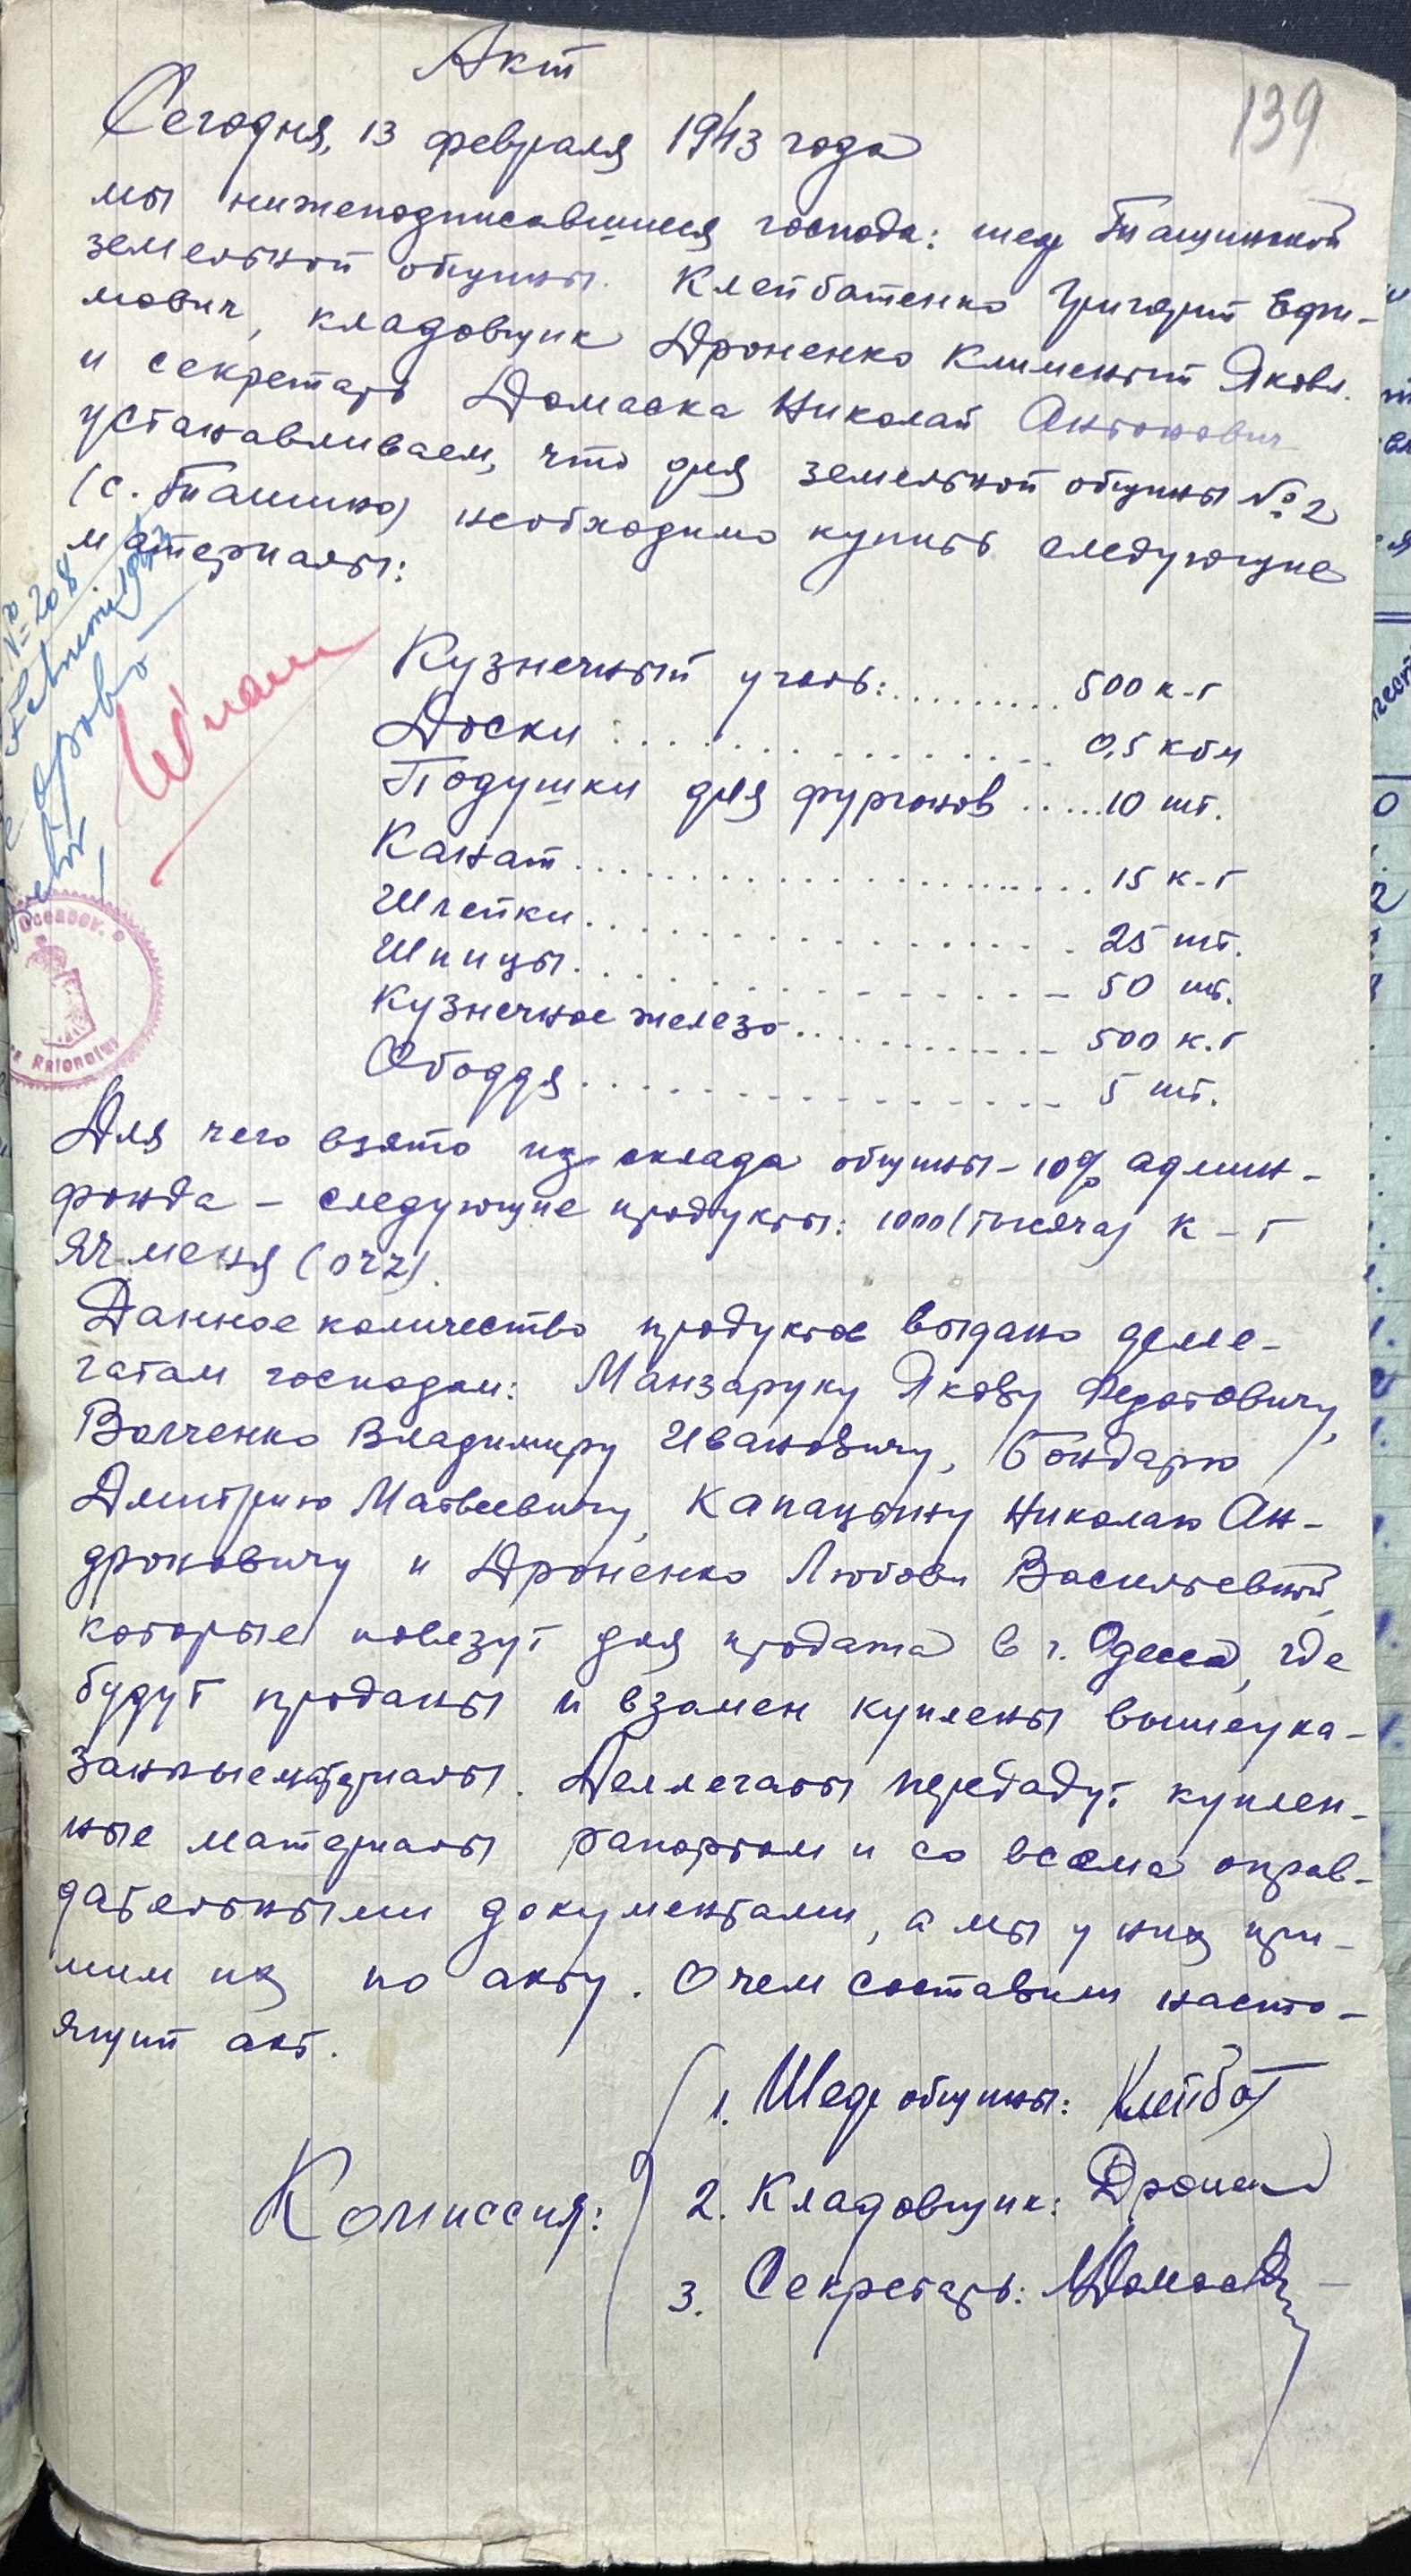 Акт
139
Сегодня, 13 февраля 1943 года
мы нижеподписавшиеся господа: шеф Ташинской
земельной общины. Клейбатенко Григорий Ефи-
мович, кладовщик Дроненко Климентий Яковл.
и секретарь Домаска Николай Антонович
устанавливаем, что для земельной общины № 2
(с. Ташино) необходимо купить следующие
материалы:
№ 208
Кузнечный уголь: .......... 500 к-г
Доски ................ 0,5 кбм
Подушки для фургонов ..... 10 шт.
Канат ...................... 15 к-г
Шлейки ................ 25 шт.
Шпицы ................ 50 шт.
Кузнечное железо ............ 500 к.г
Ободдя ................ 5 шт.
Raionului
Для чего взято из склада общины - 10% админ-
фонда - следующие продукты: 1000 (тысяча) к-г
ячменя (оч2).
Данное количество продуктов выдано деле-
гатам господам: Манзаруку Якову Федотовичу,
Волченко Владимиру Ивановичу, Бондарю
Дмитрию Матвеевичу, Капацыну Николаю Ан-
дроновичу и Дроненко Любови Васильевной,
которые повезут для продажа в г. Одесса, где
будут проданы и взамен куплены вышеука-
занные материалы. Деллегаты передадут куплен-
ные материалы рапортом и со всема оправ-
дательными документами, а мы у них при-
мим их по акту. О чем составили насто-
ящий акт.
Комиссия:
1. Шеф общины: Клейбат
2. Кладовщик: Дронен
3. Секретарь: НДомаска